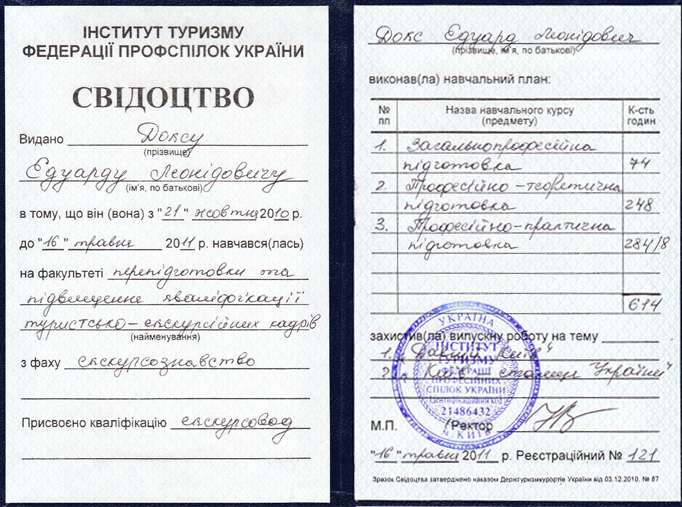 ІНСТИТУТ ТУРИЗМУ
ФЕДЕРАЦІЇ ПРОФСПІЛОК УКРАЇНИ
СВІДОЦТВО
Видано Доксу
(прізвище)
Едуарду Леонідовичу
(ім'я, по батькові)
в тому, що він (вона) з "21" жовтня 2010 р.
до "16" травня 2011 р. навчався(лась)
на факультеті перепідготовки та
підвищення кваліфікації
туристсько-екскурсійних кадрів
(найменування)
з фаху екскурсознавство
Присвоєно кваліфікацію екскурсовод
Докс Едуард Леонідович
(прізвище, ім'я, по батькові)
виконав(ла) навчальний план:
№ пп Назва навчального курсу (предмету) К-сть годин
1. Загальнопрофесійна
підготовка 74
2. Професійно-теоретична
підготовка 248
3. Професійно-практична
підготовка 284/8
614
захистив(ла) випускну роботу на тему
1. Київ"
2. "Київ столиця України"
УКРАЇНА
ІНСТИТУТ
ТУРИЗМУ
ФЕДЕРАЦІЇ
ПРОФЕСІЙНИХ
СПІЛОК УКРАЇНИ
Ідентифікаційний код
21486432
м. КИЇВ
М.П. (Ректор
"16" травня 2011 р. Реєстраційний № 121
Зразок Свідоцтва затверджено наказом Держтуризмкурортів України від 03.12.2010, № 87